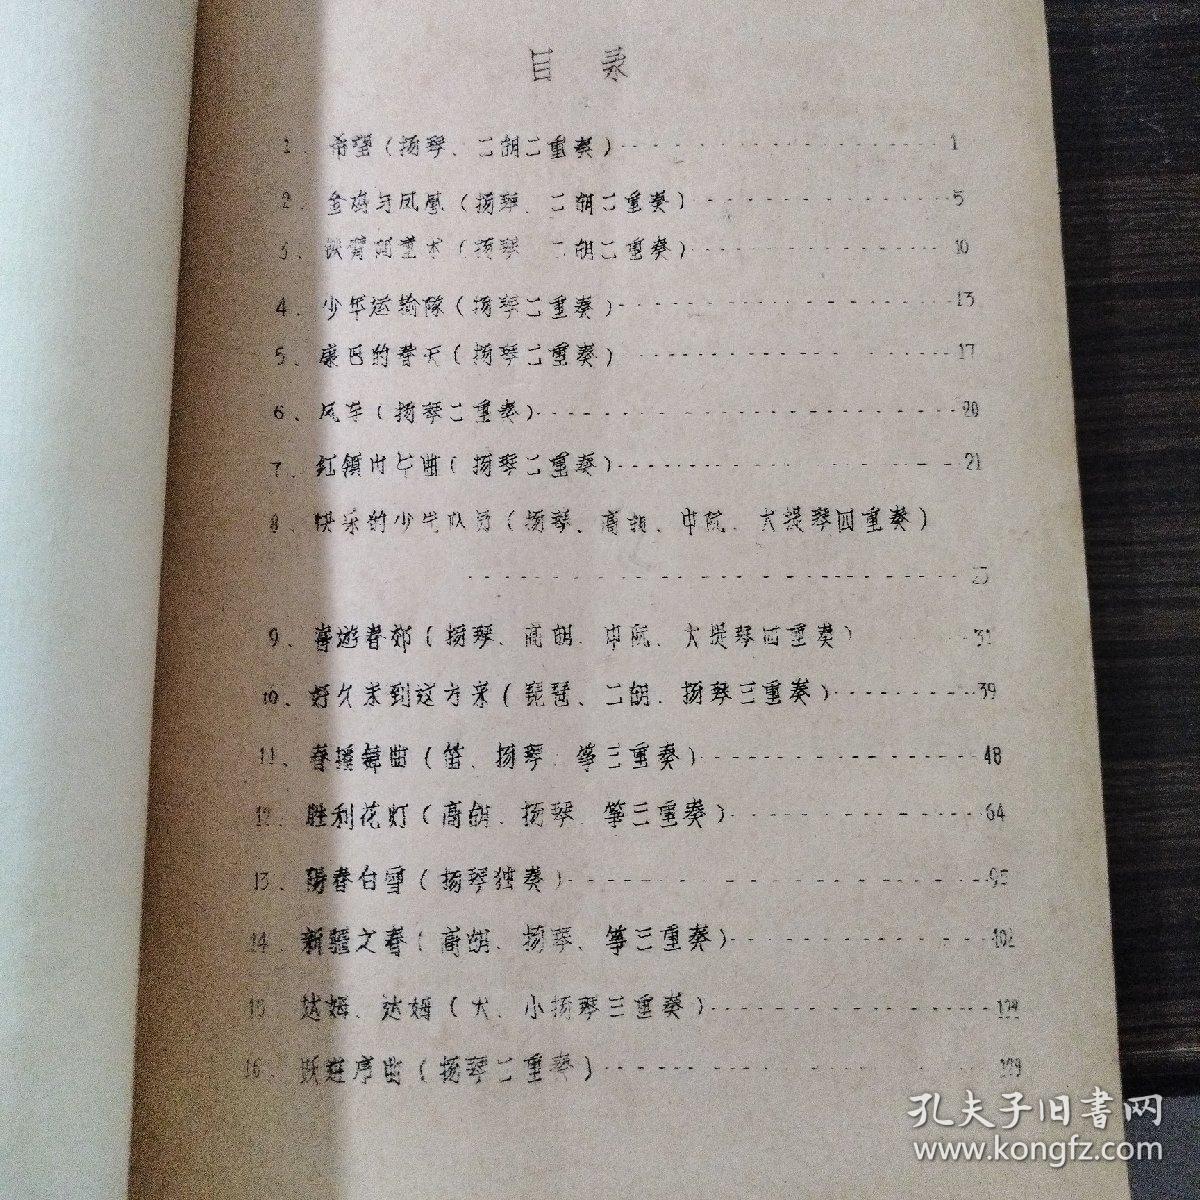 目 录
1、希望(扬琴、二胡二重奏) 1
2、金鸡与凤凰(扬琴、二胡二重奏) 5
3、(扬琴、二胡二重奏) 10
4、少年运输隊(扬琴二重奏) 13
5、康巴的春天(扬琴二重奏) 17
6、风车(扬琴二重奏) 20
7、红领巾(扬琴二重奏) 21
8、快乐的少先队员(扬琴、高胡、中阮、大提琴四重奏)
23
9、喜遊春郊(扬琴、高胡、中阮、大提琴四重奏) 31
10、好久未到这方来(琵琶、二胡、扬琴三重奏) 39
11、春舞曲(笛、扬琴、筝三重奏) 48
12、胜利花灯(高胡、扬琴、筝三重奏) 64
13、陽春白雪(扬琴独奏) 95
14、新疆之春(高胡、扬琴、筝三重奏) 102
15、达姆、达姆(大、小扬琴三重奏)
16、跃进序曲(扬琴二重奏)
孔夫子旧書网
www.kongfz.com